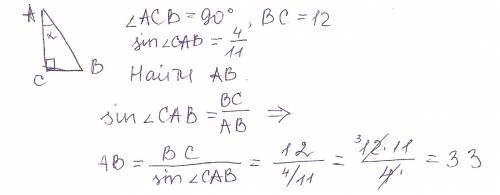 A
α
C
B
∠ACB = 90°, BC = 12
sin∠CAB = 4/11
Найти AB.
sin∠CAB = BC/AB ⇒
AB = BC/sin∠CAB = 12/4/11 = 12·11/4 = 33
3